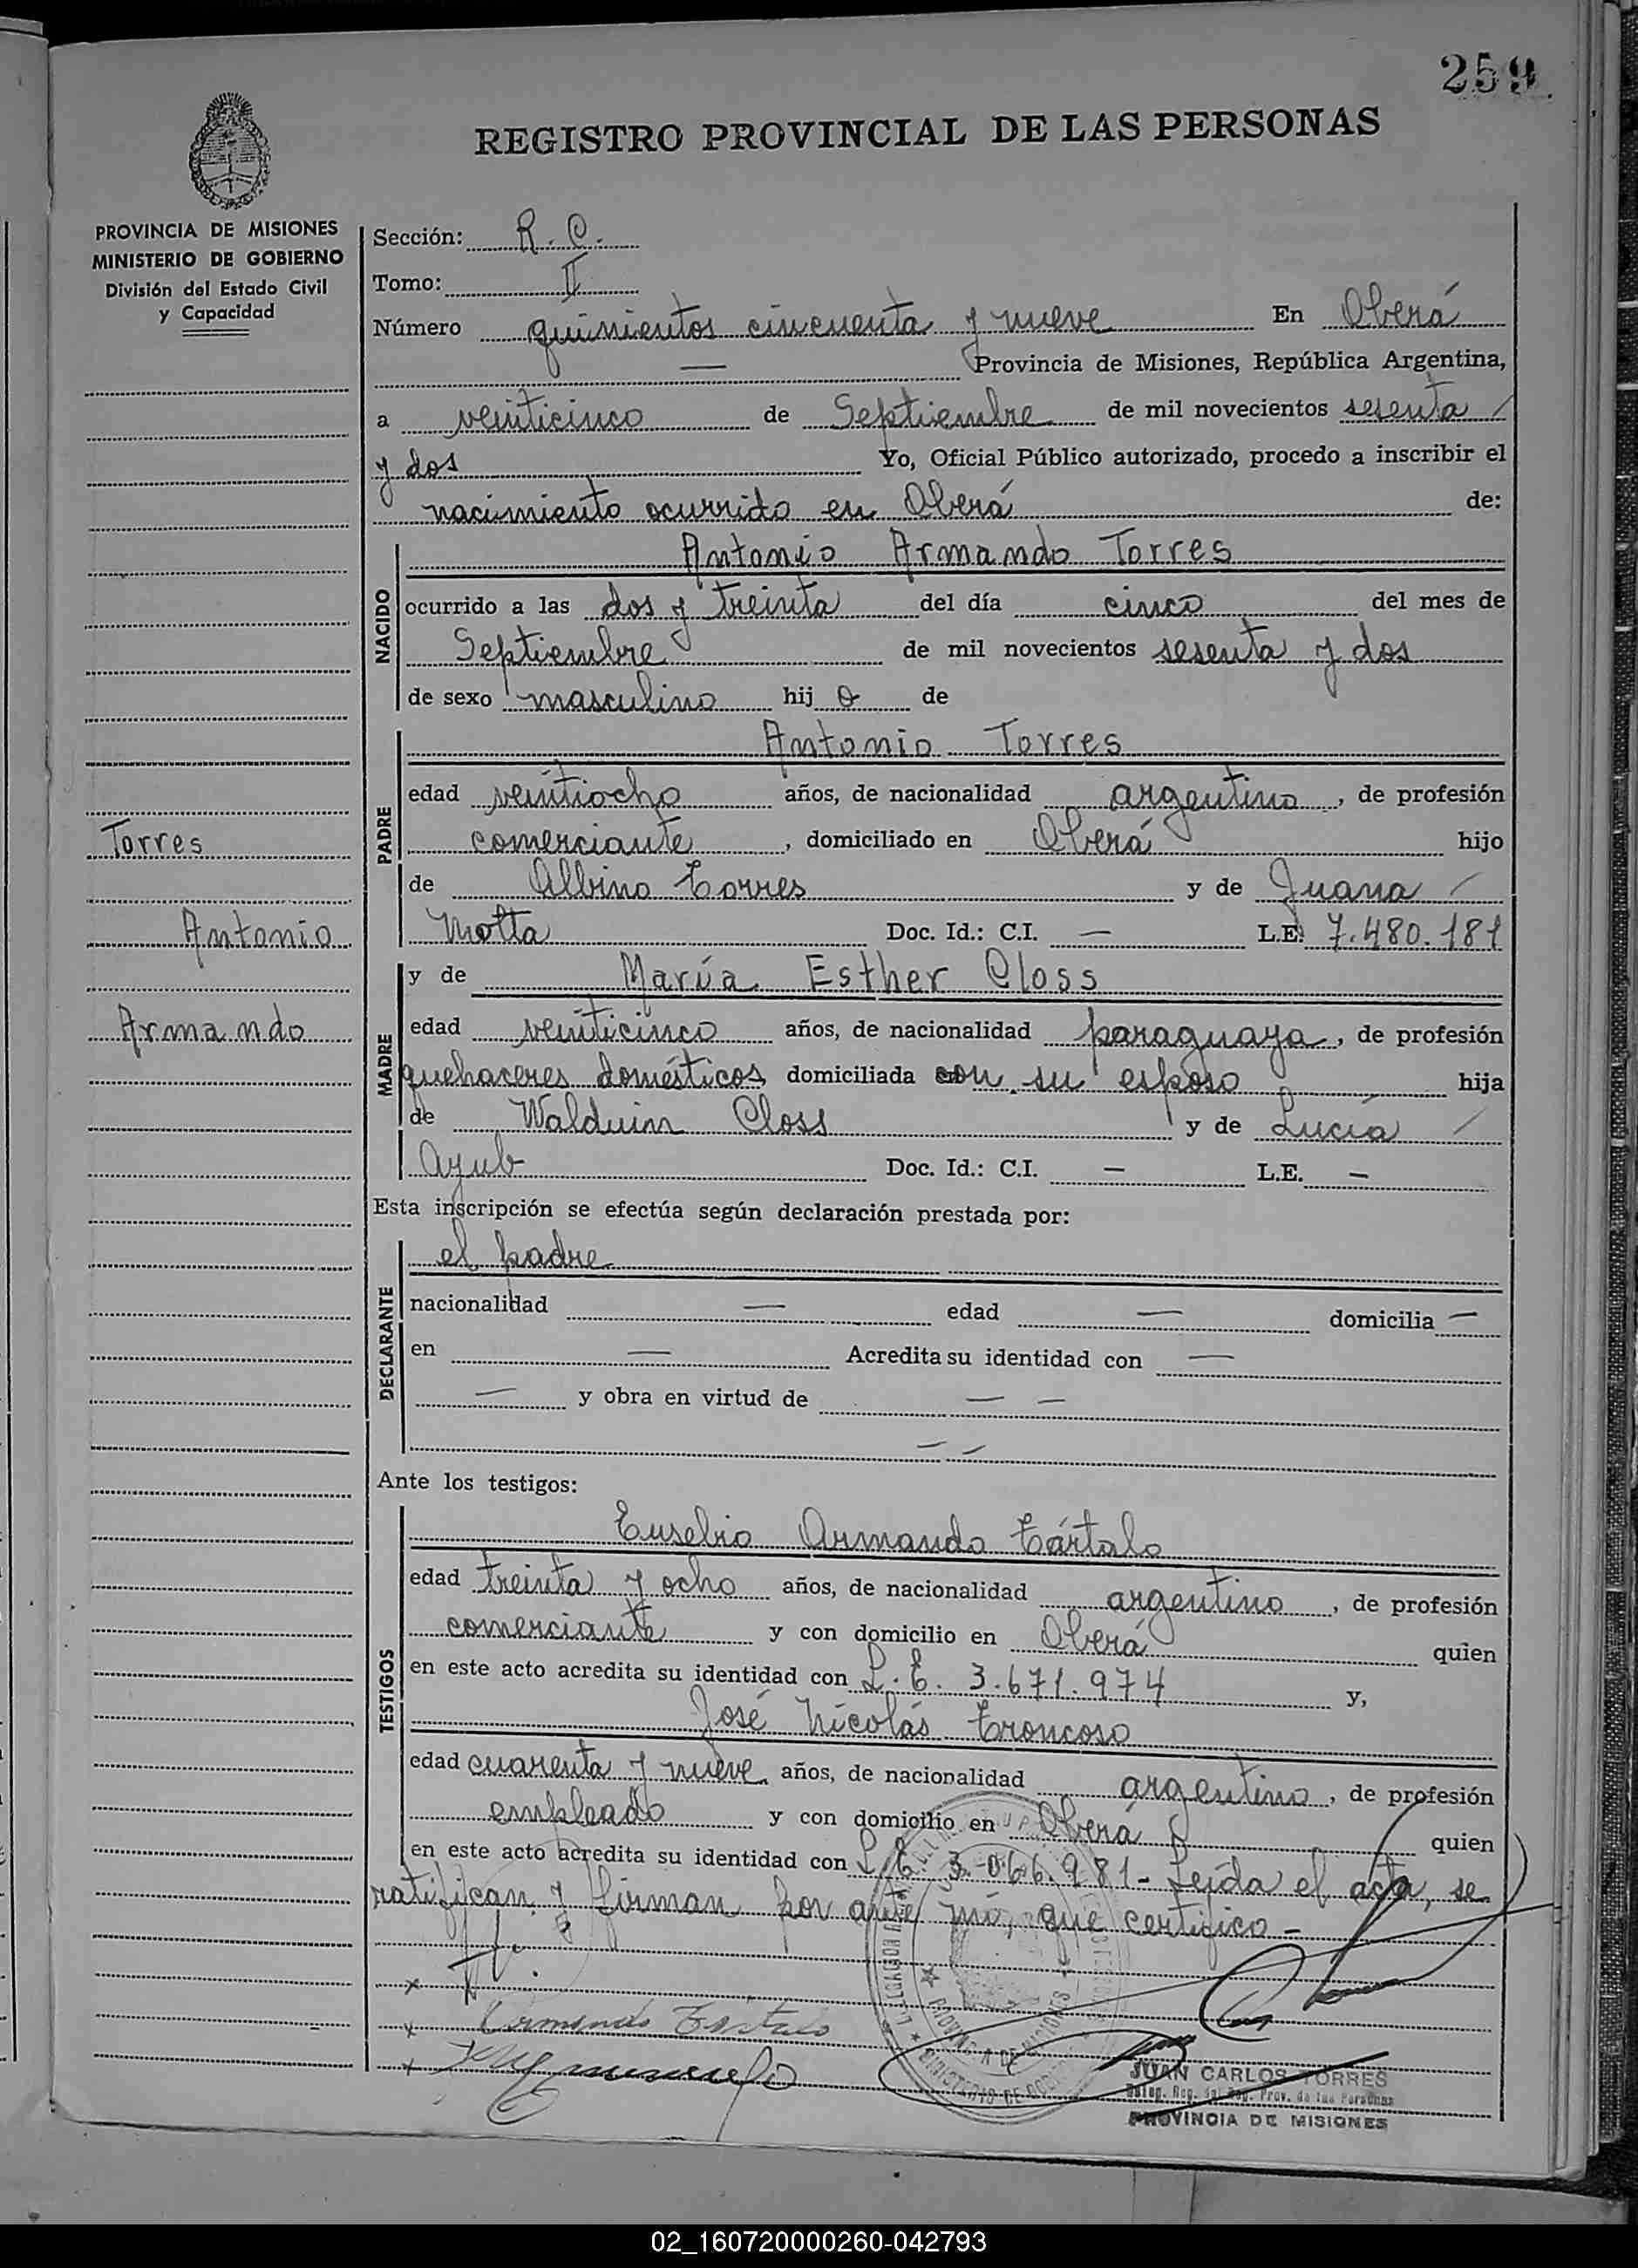 259
REGISTRO PROVINCIAL DE LAS PERSONAS
PROVINCIA DE MISIONES
MINISTERIO DE GOBIERNO
División del Estado Civil
y Capacidad
Torres
Antonio
Armando
Sección: R. C.
Tomo: II
Número quinientos cincuenta y nueve En Oberá
— Provincia de Misiones, República Argentina,
a veinticinco de Septiembre de mil novecientos sesenta /
y dos Yo, Oficial Público autorizado, procedo a inscribir el
nacimiento ocurrido en Oberá de:
NACIDO
Antonio Armando Torres
ocurrido a las dos y treinta del día cinco del mes de
Septiembre de mil novecientos sesenta y dos
de sexo masculino hij o de
PADRE
Antonio Torres
edad veintiocho años, de nacionalidad argentino, de profesión
comerciante, domiciliado en Oberá hijo
de Albino Torres y de Juana /
Motta Doc. Id.: C.I. — L.E. 7.480.181
MADRE
y de María Esther Closs
edad veinticinco años, de nacionalidad paraguaya, de profesión
quehaceres domésticos domiciliada con su esposo hija
de Walduin Closs y de Lucía /
Ayub Doc. Id.: C.I. — L.E. —
Esta inscripción se efectúa según declaración prestada por:
DECLARANTE
el padre
nacionalidad — edad — domicilia —
en — Acredita su identidad con —
— y obra en virtud de — —
— —
Ante los testigos:
TESTIGOS
Eusebio Armando Tártalo
edad treinta y ocho años, de nacionalidad argentino, de profesión
comerciante y con domicilio en Oberá quien
en este acto acredita su identidad con L. E. 3.671.974 y,
José Nicolás Troncoso
edad cuarenta y nueve años, de nacionalidad argentino, de profesión
empleado y con domicilio en Oberá quien
en este acto acredita su identidad con L. E. 3.066.981 - Leída el acta, se
ratifican y firman por ante mí, que certifico -
x
x Armando Tártalo
x
JUAN CARLOS TORRES
PROVINCIA DE MISIONES
02_160720000260-042793